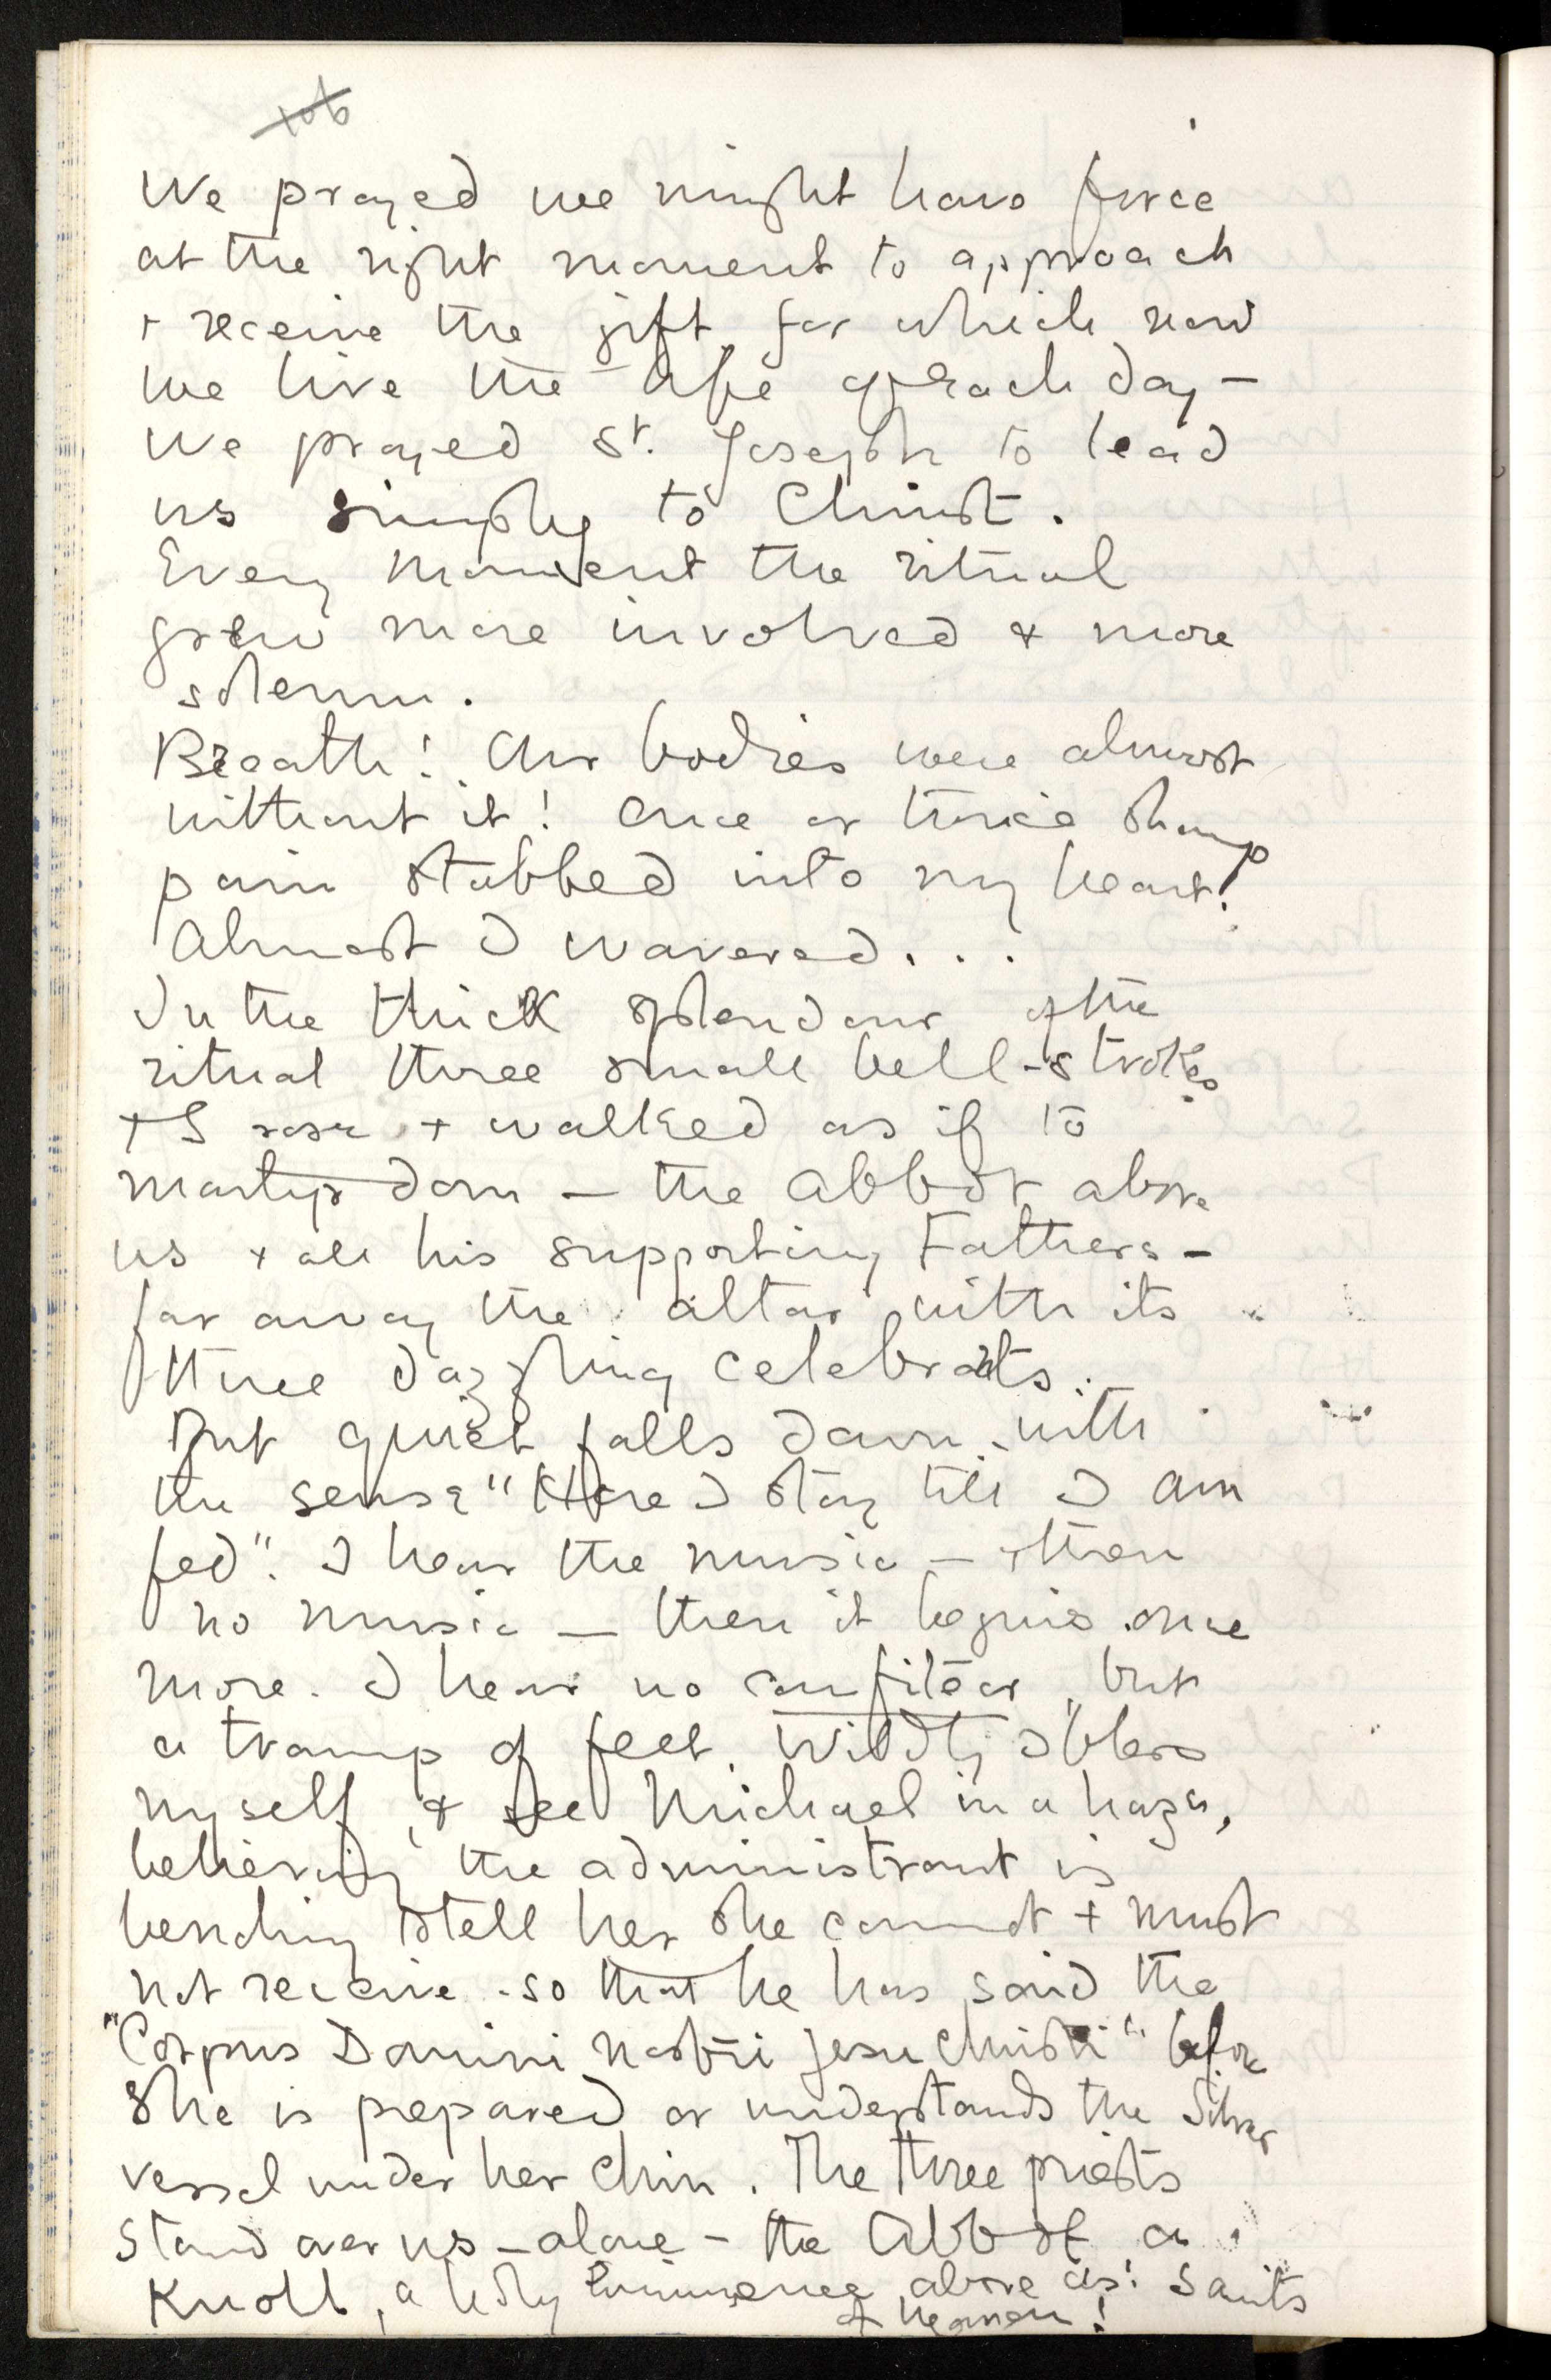 We prayed we might have force
at the right moment to approach
+ receive the gift for which now
we live the life of each day –
We prayed St. Joseph to lead
us simply to Christ.
Every moment the ritual
grew more involved & more
solemn.
Breath! Our bodies were almost
without it! Once or twice sharp
pain stabbed into my heart!
Almost I wavered. . .
In the thick splendour of the
ritual three small bell-strokes
+ I rose + walked as if to
martyrdom – the Abbot above
us + all his supporting Fathers –
far away the altar with its
three dazzling celebrants.
But quiet falls down with
the sense "Here I stay till I am
fed". I hear the music – then
no music – then it begins once
more. I hear no confiteor, but
a tramp of feet. Wildly I bless
myself, & see Michael in a haze,
believing the administrant is
bending to tell her she cannot + must
not receive – so that he has said the
"Corpus Domini nostri Jesu Christi" before
She is prepared or understands the Silver
vessel under her chin. The three priests
stand over us – alone – the Abbot a
Knoll, a holy Eminence above us! Saints
of heaven!